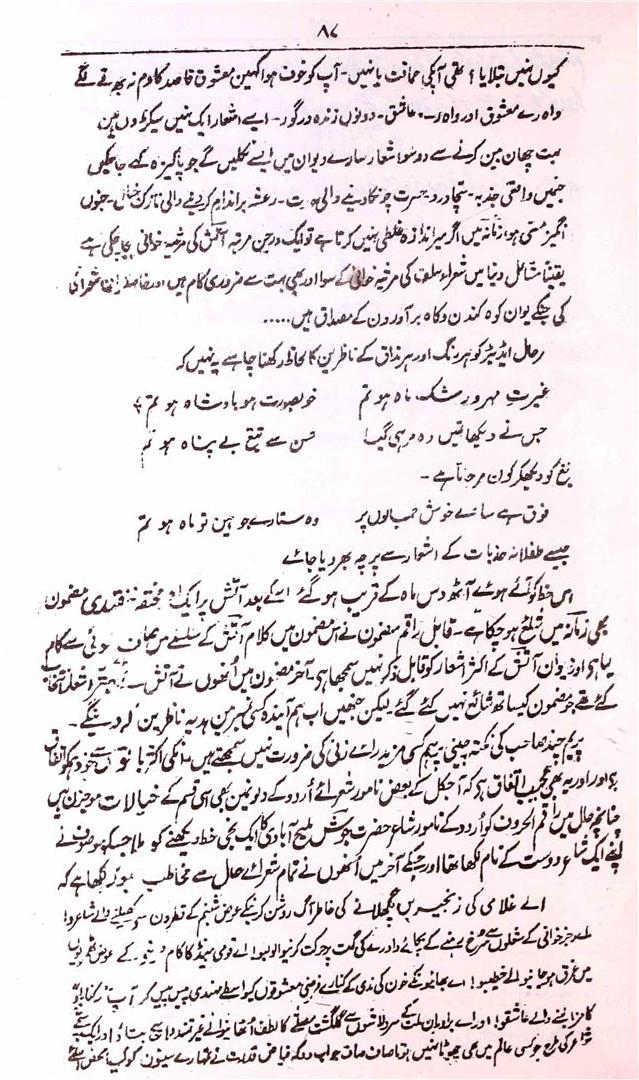 ۸۷
کیوں نہیں بتلایا؟ تھی آپکی حماقت یا نہیں۔ آپ کو خوف ہوا کہیں معشوق قاصد کا دم نہ بھرنے لگے
واہ رے معشوق اور واہ رے عاشق۔ دونوں زندہ درگور۔ ایسے اشعار ایک نہیں سیکڑوں ہیں
بہت چھان بین کرنے سے دو سو اشعار سارے دیوان میں ایسے نکلیں گے جو پاکیزہ کہے جا سکیں
جنمیں واقعی جذبہ۔ سچا درد۔ حسرت چونکا دینے والی۔ رعشہ براندام کر دینے والی نازک خیالی۔ جنوں
انگیز مستی ہو، زمانہ میں اگر میرا اندازہ غلطی نہیں کرتا ہے تو ایک درجن مرتبہ آتش کی مرثیہ خوانی کیجا چکی ہے
یقیناً مشاغل دنیا میں شعراء سلف کی مرثیہ خوانی کے سوا اور بھی بہت سے ضروری کام ہیں اور خاصکر ایسے شعرا کی
کی جنکے دیوان کوہ کندن و کاہ برآوردن کے مصداق ہیں .....
بہر حال ایڈیٹر کو ہر رنگ اور ہر مذاق کے ناظرین کا لحاظ رکھنا چاہیے یہ نہیں کہ
غیرتِ مہر و رشک ماہ ہو تم خوبصورت ہو بادشاہ ہو تم
جس نے دیکھا تمہیں وہ مر ہی گیا حسن سے تیغ بے پناہ ہو تم
تیغ کو دیکھکر کون مر جاتا ہے۔
فوق ہے سارے خوش جمالوں پر وہ ستارے جو ہیں تو ماہ ہو تم
جیسے طفلانہ جذبات کے اشعار سے پرچہ بھر دیا جائے
اس خط کو آئے ہوئے آٹھ دس ماہ کے قریب ہو گئے اسکے بعد آتش پر ایک اور مختصر تنقیدی مضمون
بھی زمانہ میں شائع ہو چکا ہے۔ قابل راقم مضمون نے اس مضمون میں کلام آتش کے سلسلے میں گام
لیا ہے اور دیوان آتش کے اکثر اشعار کو قابل ذکر نہیں سمجھا ہے۔ آخر مضمون میں اُنھوں نے آتش کے بہتر اشعار انتخاب
کئے تھے جو مضمون کیساتھ شائع نہیں کئے گئے لیکن جنھیں اب ہم آیندہ کسی نمبر میں ہدیہ ناظرین کر دینگے۔
پریم چند صاحب کی نکتہ چینی پر ہم کسی مزید رائے زنی کی ضرورت نہیں سمجھتے ہیں انکی اکثر باتوں سے خود ہمکو اتفاق
ہے اور اور یہ بھی عجیب اتفاق ہے کہ آجکل کے بعض نامور شعرائے اُردو کے دلوں میں بھی اسی قسم کے خیالات موجزن ہیں
چنانچہ حال میں راقم الحروف کو اُردو کے نامور شاعر حضرت جوش ملیح آبادی کا ایک نجی خط دیکھنے کو ملا جسکو موصوف نے
اپنے ایک شاعر دوست کے نام لکھا تھا اور جسکے آخر میں اُنھوں نے تمام شعرائے حال سے مخاطب ہو کر لکھا ہے کہ
اے غلامی کی زنجیریں پگھلانے کی خاطر آگ روشن کرنیکے عوض شبنم کے قطروں سے کھیلنے والے شاعرو!
اے رجز خوانی کے شعلوں سے سُرخ رہنے کے بجائے دادرے کی گت پر حرکت کرنیوالو لبو! اے قومی میڈ کا کام دینے کے عوض
میں غرق ہو جانیوالے خطیبو! اے بھائیونکے خون کی ندی کے کنارے فرضی معشوقوں کیواسطے مہندی پیس پیس کر
کا مزا لینے والے عاشقو! اور اے برادران ملت کے سرد لاشوں سے گلگشت مصلے کا لطف اُٹھانیوالے غیرتمندو! سچ سچ بتاؤ
مرکی طرح جو کسی عالم میں بھی جھوٹا نہیں ہوتا صاف صاف جواب دو کہ فیاض قدرت نے تمہارے سینوں کو کیا محض اسلئے